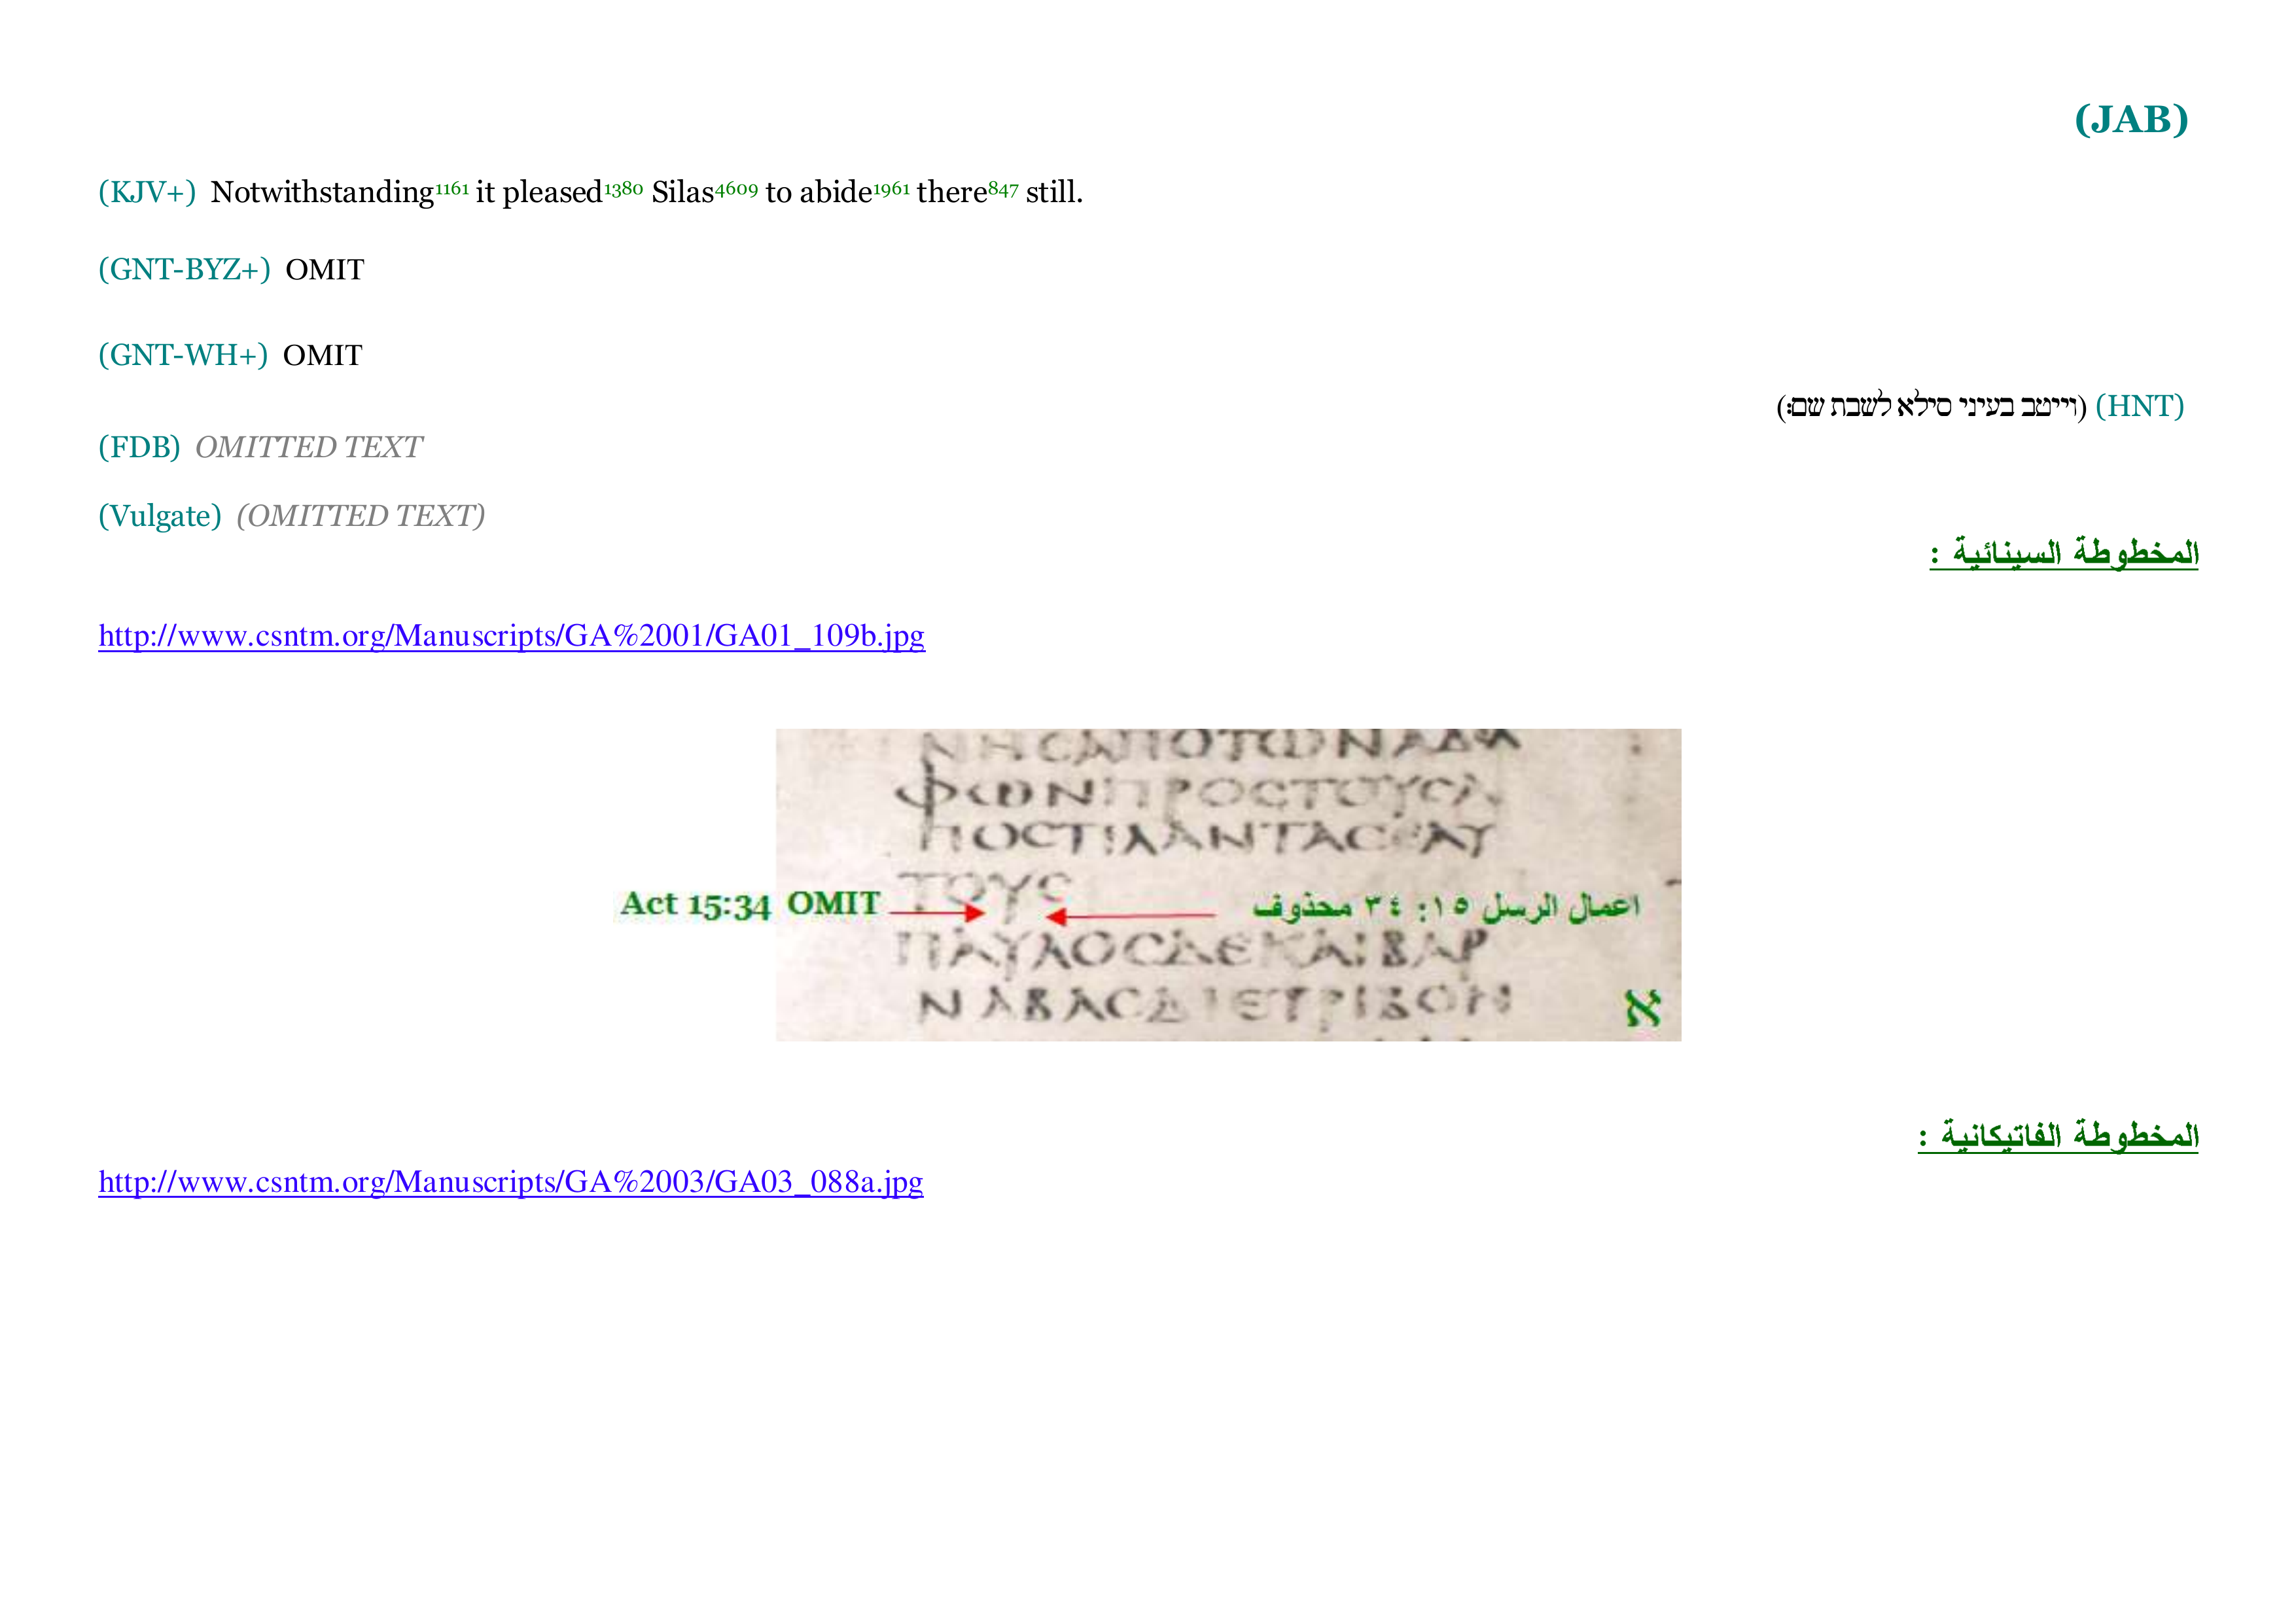 (JAB)
(KJV+) Notwithstanding1161 it pleased1380 Silas4609 to abide1961 there847 still.
(GNT-BYZ+) OMIT
(GNT-WH+) OMIT
(HNT) (וייטב בעיני סילא לשבת שם׃)
(FDB) OMITTED TEXT
(Vulgate) (OMITTED TEXT)
المخطوطة السينائية :
http://www.csntm.org/Manuscripts/GA%2001/GA01_109b.jpg
ΝΗϹΑΠΟΤΩΝΑΔΕΛ
ΦΩΝΠΡΟϹΤΟΥϹΑ
ΠΟϹΤΙΛΑΝΤΑϹΕΑΥ
ΤΟΥϹ
Act 15:34 OMIT
اعمال الرسل ١٥: ٣٤ محذوف
ΠΑΥΛΟϹΔΕΚΑΙΒΑΡ
ΝΑΒΑϹΔΙΕΤΡΙΒΟΝ
א
المخطوطة الفاتيكانية :
http://www.csntm.org/Manuscripts/GA%2003/GA03_088a.jpg